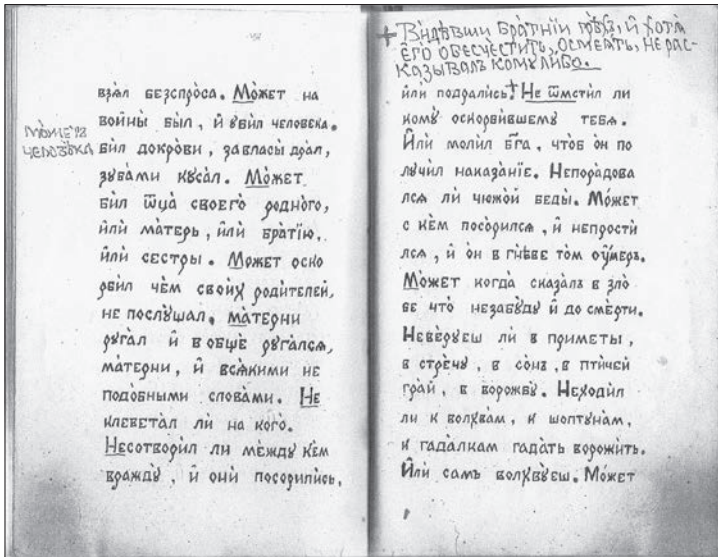 взял безспроса. Может на
войны был, и убил человека.
бил докрови, за власы драл,
зубами кусал. Может
бил ѿца своего родного,
или матерь, или братїю,
или сестры. Может оско
рбил чем своих родителей,
не послушал. матерни
ругал и вобще ругался,
матерни, и всякими не
подобными словами. Не
клеветал ли на кого.
Несотворил ли между кем
вражду, и они посорились,
Может
человека
+ Видевши братнїи грехъ, и хотя
его обесчестить, осмеять, не рас-
казывалъ кому либо.
или подрались+ Не ѿмстил ли
кому оскорбившему тебя.
Или молил бг҃а, чтоб он по
лучил наказанїе. Непорадова
лся ли чюжой беды. Может
с кем посорился, и непрости
лся, и он в гневе том оумеръ.
Может когда сказалъ в зло
бе что незабуду и до смерти.
Неверуеш ли в приметы,
в стречу, в сонъ, в птичей
грай, в ворожбу. Неходил
ли к волхвам, к шоптунам,
к гадалкам гадать ворожить.
Или самъ волхвуеш. Может